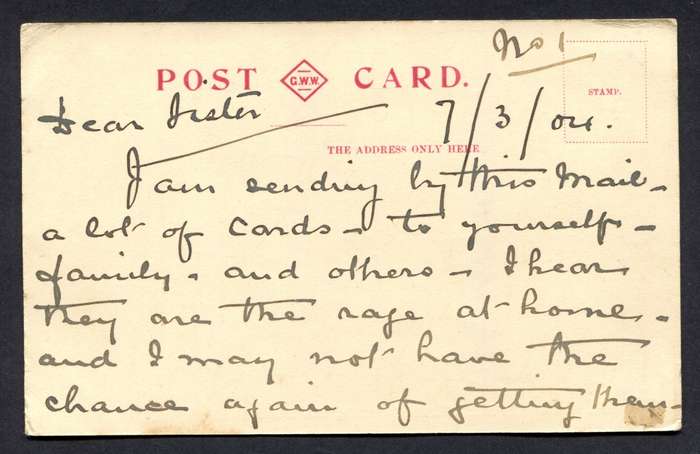 No 1
POST G.W.W. CARD.
STAMP.
Dear Sister
7/3/04.
THE ADDRESS ONLY HERE
I am sending by this Mail -
a lot of Cards - to yourself -
family - and others - I hear
they are the rage at home -
and I may not have the
chance again of getting them -